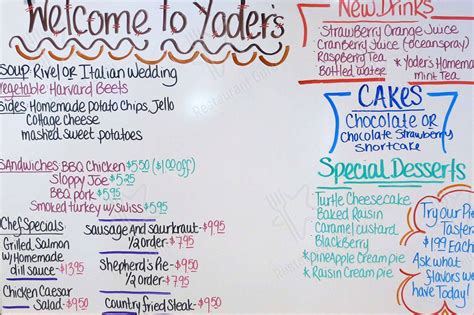 Welcome to Yoder's
Soup Rivel or Italian Wedding
Vegetable Harvard Beets
Sides Homemade potato Chips, Jello
Cottage cheese
mashed sweet potatoes
Sandwiches BBQ Chicken $5.50 ($1.00 off)
Sloppy Joe $5.25
BBQ pork $5.95
Smoked turkey w/ Swiss $5.95
Chef Specials
Grilled Salmon
w/ Homemade
dill sauce - $13.95
Chicken Caesar
Salad - $9.50
Sausage And Saurkraut - $9.95
1/2 order - $7.95
Shepherd's Pie - $9.50
1/2 order - $7.95
Country fried Steak - $9.50
New Drinks
Strawberry Orange Juice
Cranberry Juice (ocean spray)
Raspberry Tea
Bottled water
* Yoder's Homemade
mint Tea
Cakes
Chocolate or
Chocolate Strawberry
Shortcake
Special Desserts
Turtle Cheesecake
Baked Raisin
Caramel custard
BlackBerry
*pineapple Cream pie
*Raisin Cream pie
Try our Pie
Taster
$1.99 Each
Ask what
flavors we
have Today!